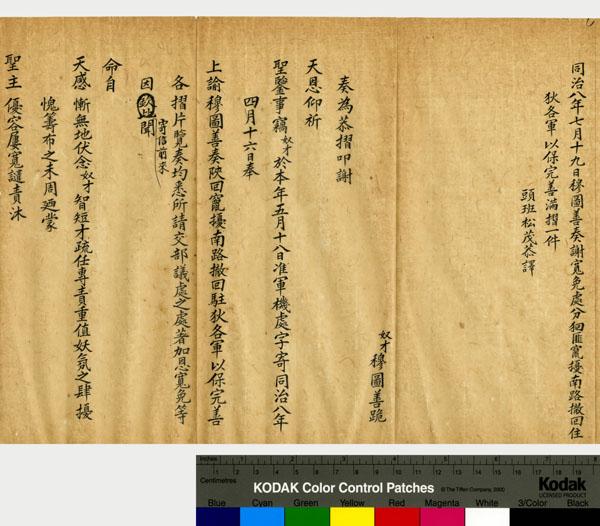 同治八年七月十九日穆圖善奏謝寬免處分狥匪竄擾南路撤回住
狄各軍以保完善滿摺一件
頭班松茂恭譯
奴才穆圖善跪
奏為恭摺叩謝
天恩仰祈
聖鑒事竊奴才於本年五月十八日准軍機處字寄同治八年
四月十六日奉
上諭穆圖善奏陝回竄擾南路撤回駐狄各軍以保完善
各摺片覽奏均悉所請交部議處之處著加恩寬免等
因欽此聞
寄信前來
命自
天感慚無地伏念奴才智短才疏任專責重值妖氛之肆擾
愧籌布之未周廼蒙
聖主優容屢寬譴責沐
Inches
Centimetres
KODAK Color Control Patches
© The Tiffen Company, 2000
Kodak
LICENSED PRODUCT
Blue Cyan Green Yellow Red Magenta White 3/Color Black